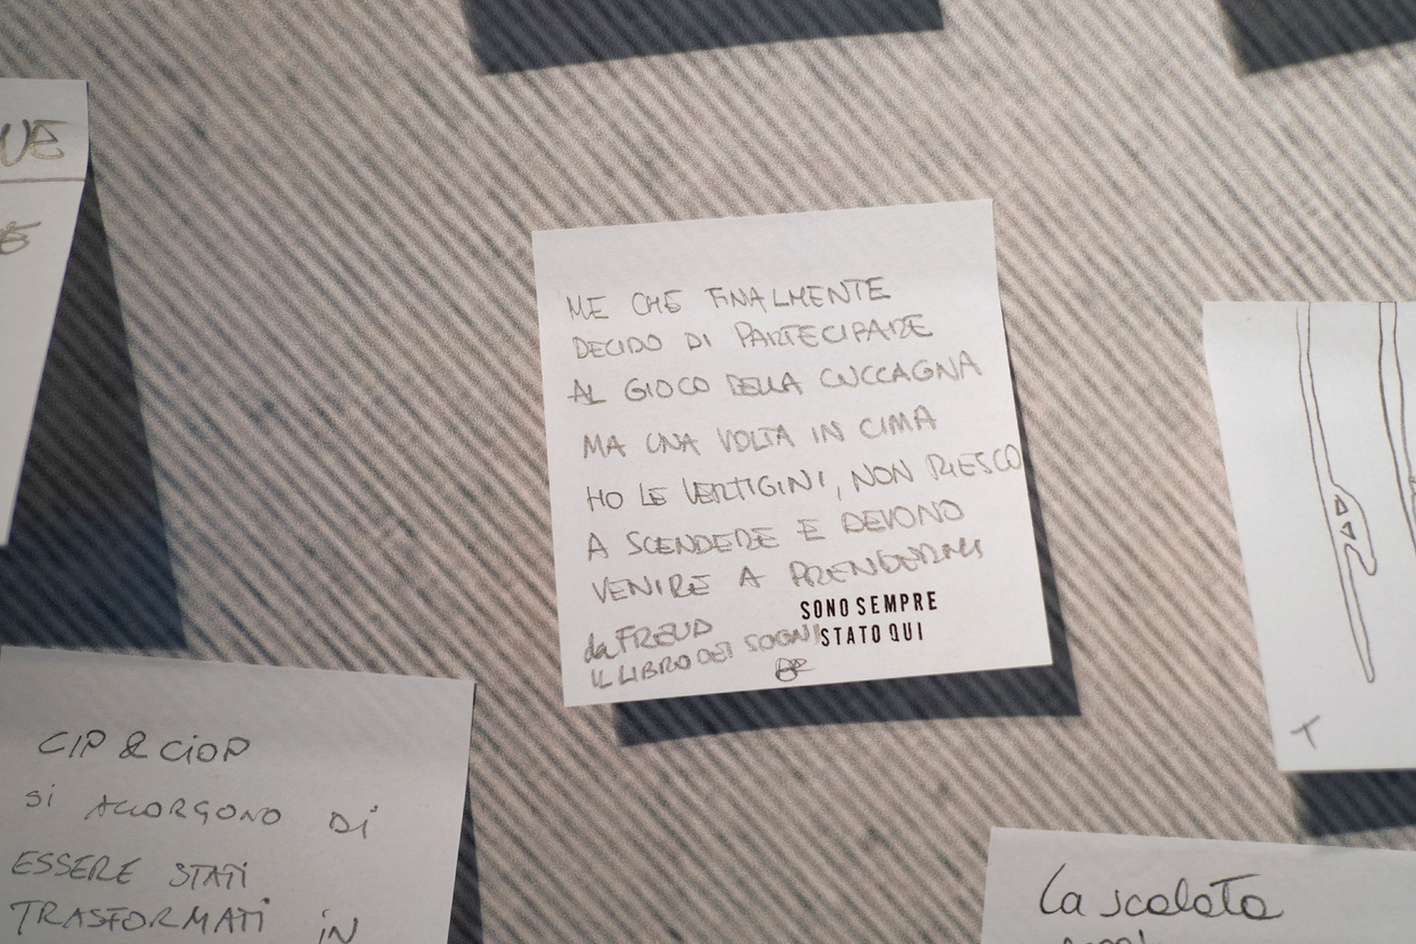 UE
E
ME CHE FINALMENTE
DECIDO DI PARTECIPARE
AL GIOCO DELLA CUCCAGNA
MA UNA VOLTA IN CIMA
HO LE VERTIGINI, NON RIESCO
A SCENDERE E DEVONO
VENIRE A PRENDERMI
da FREUD
IL LIBRO DEI SOGNI
SONO SEMPRE
STATO QUI
CIP & CIOP
Si ACCORGONO Di
ESSERE STATi
TRASFORMATi iN
La scalata